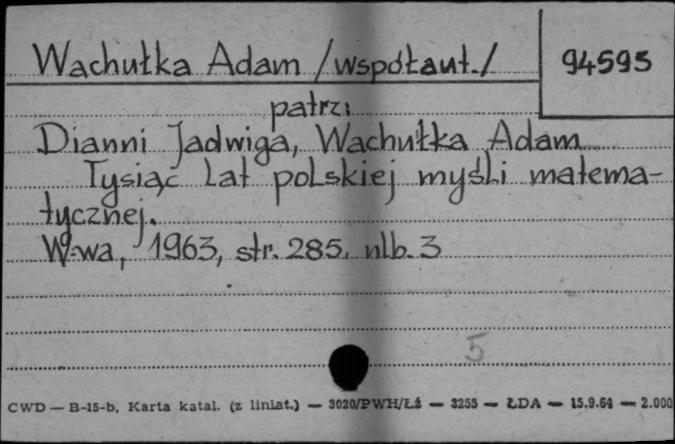 Wachułka Adam /współaut./ 94593
patrz:
Dianni Jadwiga, Wachułka Adam
Tysiąc lat polskiej myśli matema-
tycznej.
W-wa, 1963, str. 285, nlb. 3
5
CWD — B-15-b, Karta katal. (z liniat.) — 3020/PWH/Łź — 3255 — ŁDA — 15.9.64 — 2.000